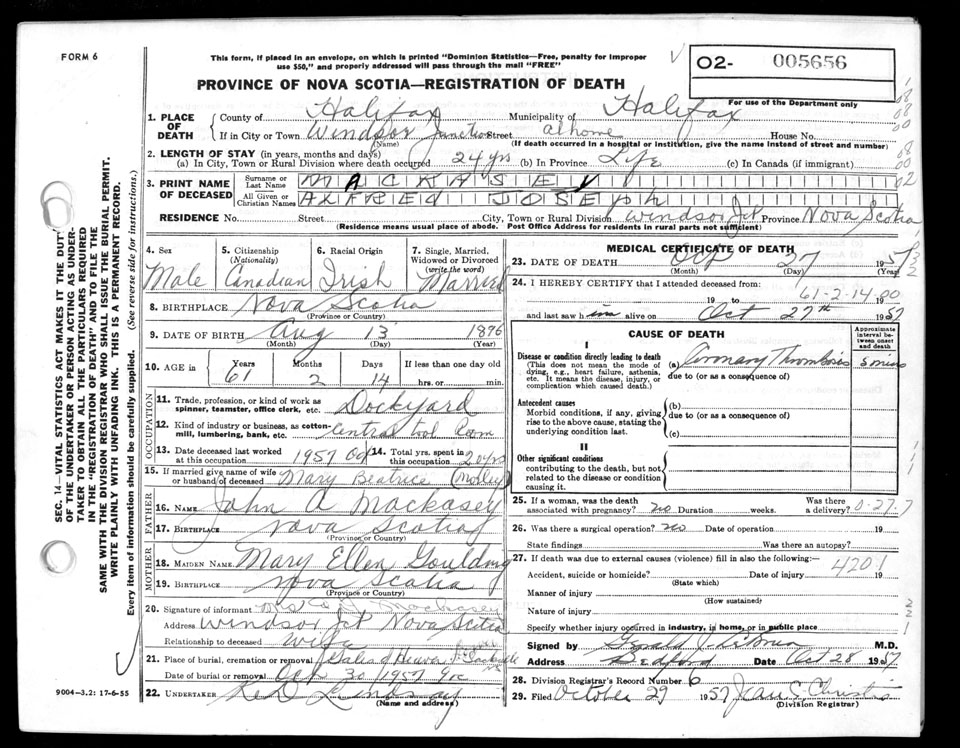 FORM 6
This form, if placed in an envelope, on which is printed "Dominion Statistics—Free, penalty for improper
use $50," and properly addressed will pass through the mail "FREE"
O2- 005656
For use of the Department only
PROVINCE OF NOVA SCOTIA—REGISTRATION OF DEATH
1. PLACE OF DEATH
County of Halifax Municipality of Halifax
If in City or Town Windsor Junction Street at home House No.
(Name) (If death occurred in a hospital or institution, give the name instead of street and number)
2. LENGTH OF STAY (in years, months and days)
(a) In City, Town or Rural Division where death occurred 24 yrs (b) In Province Life (c) In Canada (if immigrant)
3. PRINT NAME OF DECEASED
Surname or Last Name MACKASEY
All Given or Christian Names ALFRED JOSEPH
RESIDENCE No. Street City, Town or Rural Division Windsor Jct Province Nova Scotia
(Residence means usual place of abode. Post Office Address for residents in rural parts not sufficient)
4. Sex Male
5. Citizenship (Nationality) Canadian
6. Racial Origin Irish
7. Single, Married, Widowed or Divorced (write the word) Married
8. BIRTHPLACE Nova Scotia
(Province or Country)
9. DATE OF BIRTH Aug 13 1896
(Month) (Day) (Year)
10. AGE in Years 61 Months 2 Days 14 If less than one day old
hrs. or min.
OCCUPATION
11. Trade, profession, or kind of work as spinner, teamster, office clerk, etc. Dockyard
12. Kind of industry or business, as cotton-mill, lumbering, bank, etc. Central tool Room
13. Date deceased last worked at this occupation 1957 Oct
14. Total yrs. spent in this occupation 20 yrs
15. If married give name of wife or husband of deceased Mary Beatrice (Mosley)
FATHER
16. NAME John A Mackasey
17. BIRTHPLACE Nova Scotia
(Province or Country)
MOTHER
18. MAIDEN NAME Mary Ellen Goulding
19. BIRTHPLACE Nova Scotia
(Province or Country)
20. Signature of informant Mrs A J Mackasey
Address Windsor Jct Nova Scotia
Relationship to deceased Wife
21. Place of burial, cremation or removal
Date of burial or removal Oct 30 1957
22. UNDERTAKER Lindsay
(Name and address)
MEDICAL CERTIFICATE OF DEATH
23. DATE OF DEATH Oct 27 1957
(Month) (Day) (Year)
24. I HEREBY CERTIFY that I attended deceased from:
61-2-14-80
19 to 19
and last saw him alive on Oct 27th 1957
CAUSE OF DEATH
Approximate interval between onset and death
I
Disease or condition directly leading to death (a) Coronary Thrombosis 5 mins
(This does not mean the mode of dying, e.g., heart failure, asthenia, etc. It means the disease, injury, or complication which caused death.)
due to (or as a consequence of)
Antecedent causes
Morbid conditions, if any, giving rise to the above cause, stating the underlying condition last.
(b)
due to (or as a consequence of)
(c)
II
Other significant conditions
contributing to the death, but not related to the disease or condition causing it.
25. If a woman, was the death associated with pregnancy? no Duration weeks. Was there a delivery?
0-27-7
26. Was there a surgical operation? no Date of operation 19
State findings Was there an autopsy?
27. If death was due to external causes (violence) fill in also the following:—
4201
Accident, suicide or homicide? Date of injury 19
(State which)
Manner of injury
(How sustained)
Nature of injury
Specify whether injury occurred in industry, in home, or in public place
Signed by Gerald J. M.D.
Address Bedford Date Oct 28 1957
28. Division Registrar's Record Number 6
29. Filed October 29 1957 Jean S. Christie
(Division Registrar)
SEC. 14—VITAL STATISTICS ACT MAKES IT THE DUTY
OF THE UNDERTAKER OR PERSON ACTING AS UNDER-
TAKER TO OBTAIN ALL THE PARTICULARS REQUIRED
IN THE "REGISTRATION OF DEATH" AND TO FILE THE
SAME WITH THE DIVISION REGISTRAR WHO SHALL ISSUE THE BURIAL PERMIT.
WRITE PLAINLY WITH UNFADING INK. THIS IS A PERMANENT RECORD.
Every item of information should be carefully supplied. (See reverse side for instructions.)
9004—3.2: 17-6-55